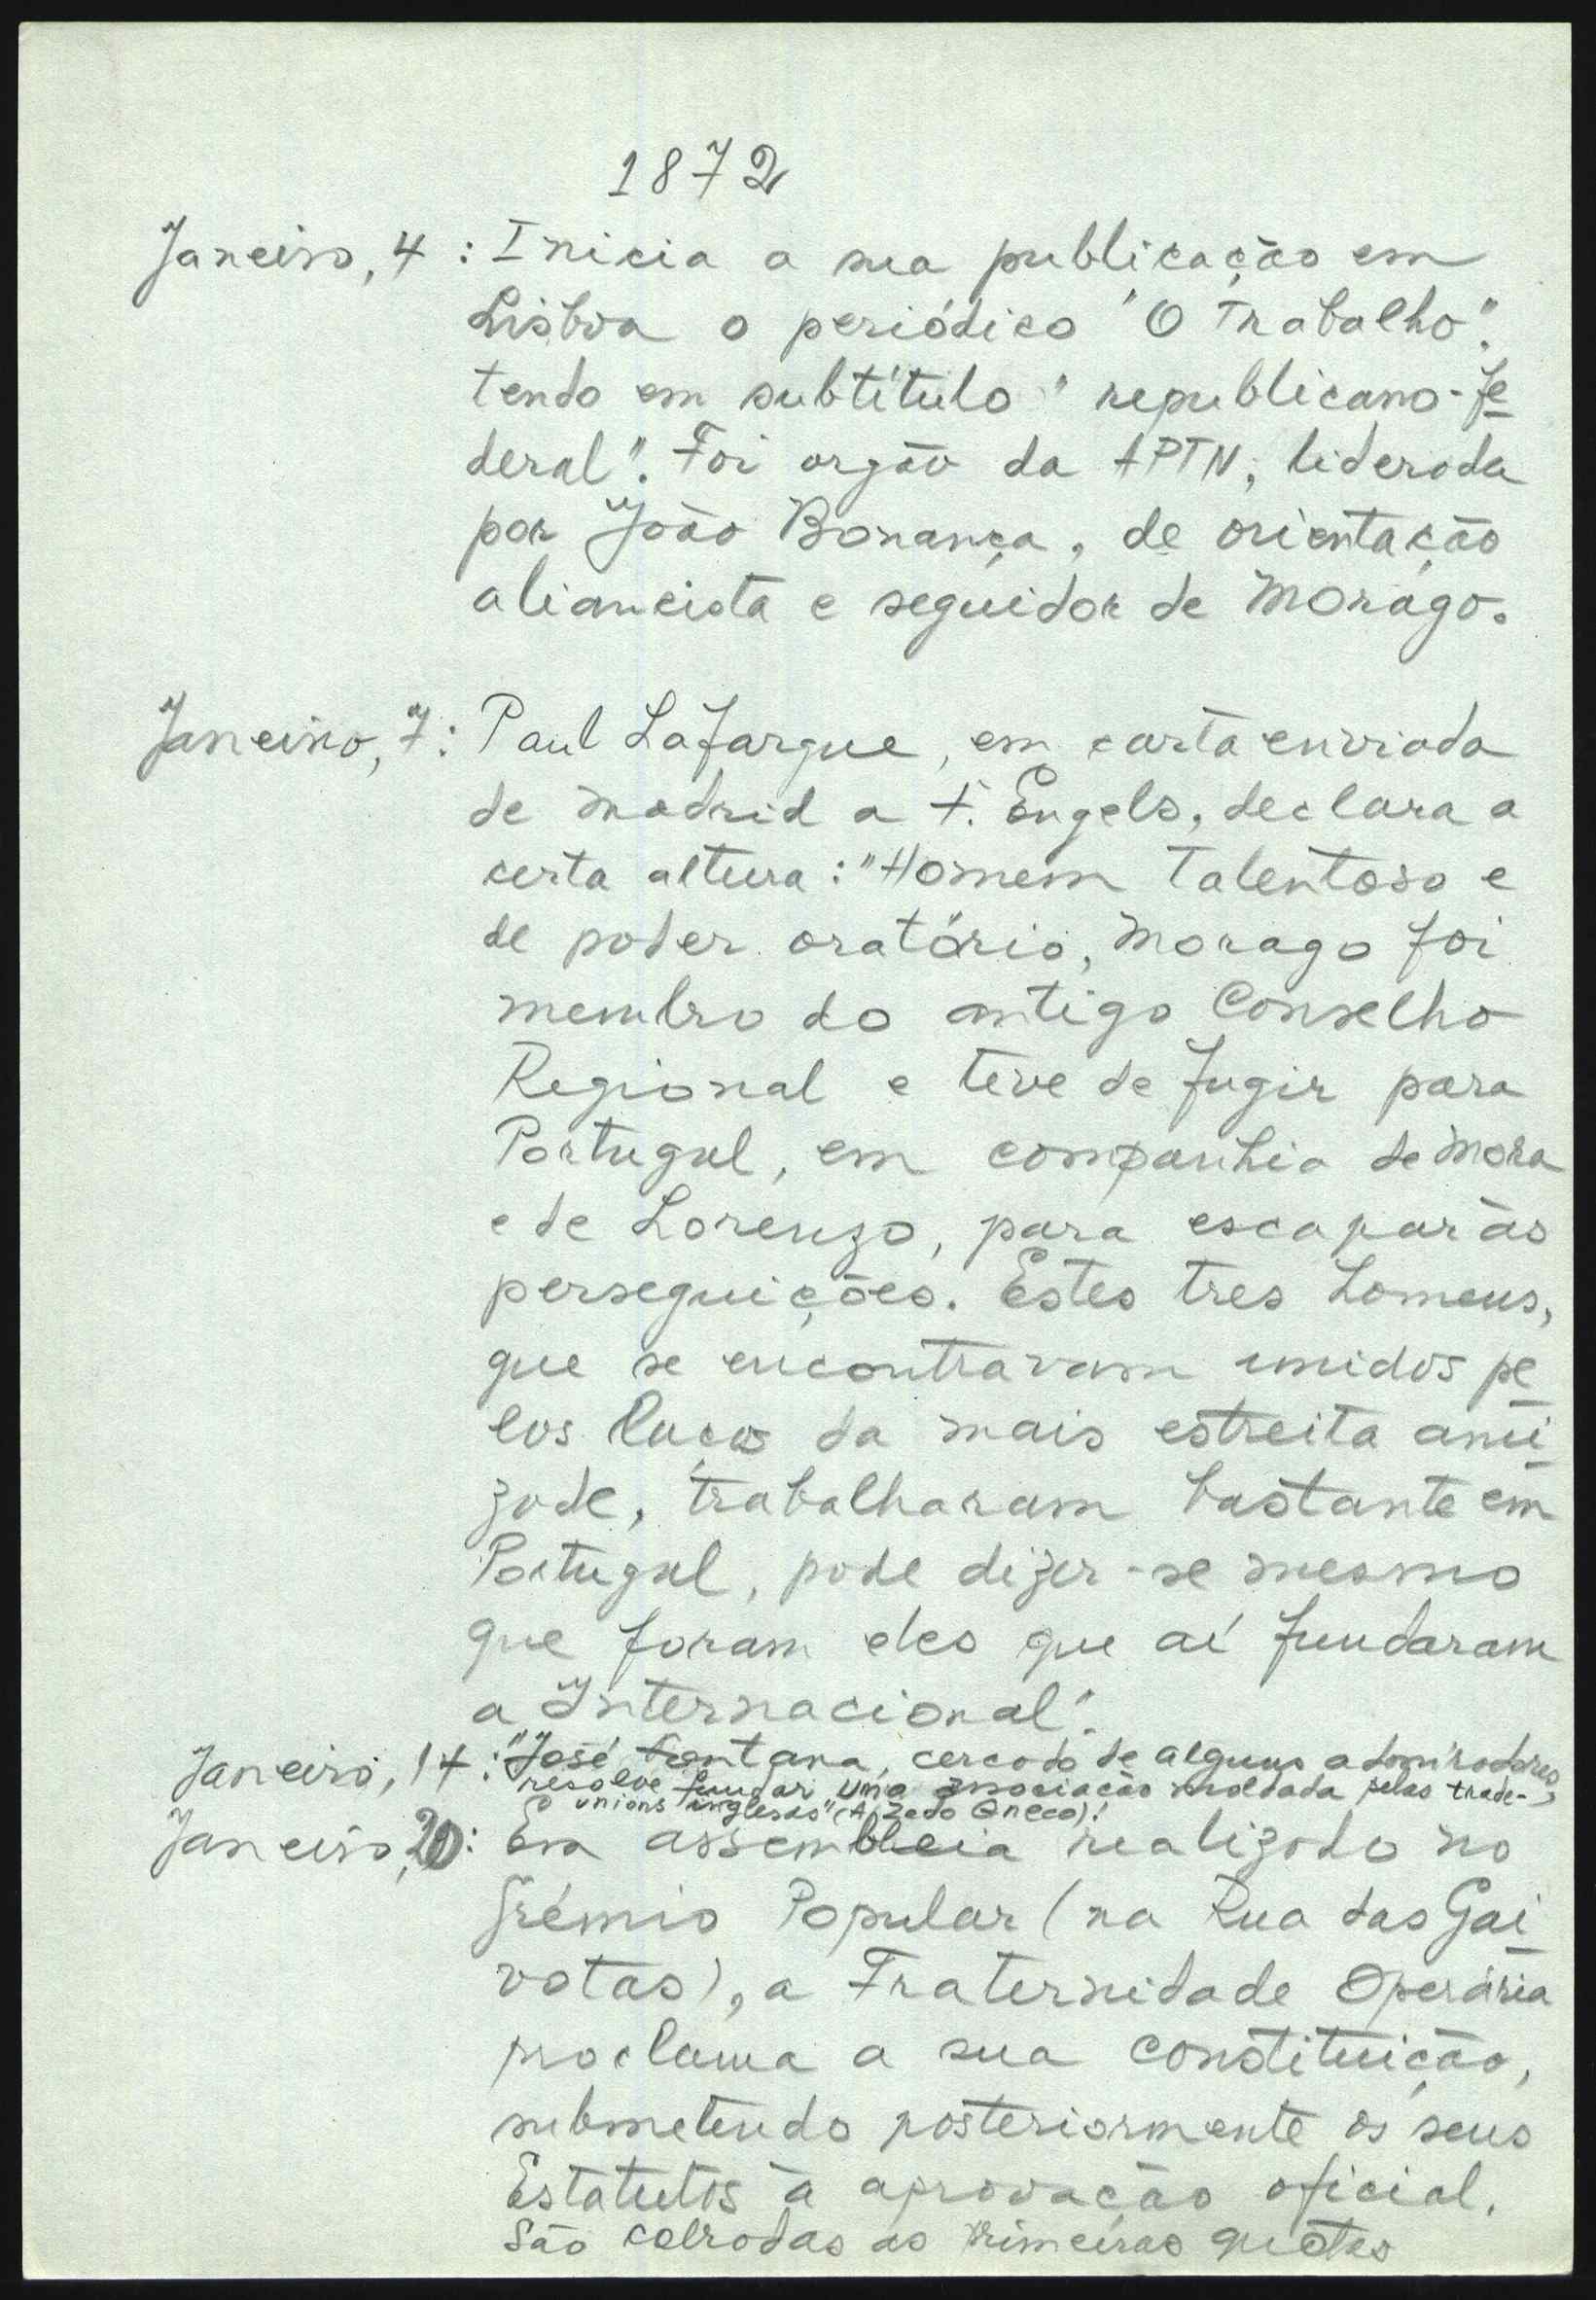 1872
Janeiro, 4 : Inicia a sua publicação em
Lisboa o periódico "O Trabalho",
tendo em subtítulo "republicano-fe
deral". Foi orgão da APTN, liderada
por João Bonança, de orientação
aliancista e seguidor de Morago.
Janeiro, 7 : Paul Lafargue, em carta enviada
de Madrid a F. Engels, declara a
certa altura : "Homem talentoso e
de poder oratório, Morago foi
membro do antigo Conselho
Regional e teve de fugir para
Portugal, em companhia de Mora
e de Lorenzo, para escapar às
perseguições. Estes tres homens,
que se encontravam unidos pe
los laços da mais estreita ami
zade, trabalharam bastante em
Portugal, pode dizer-se mesmo
que foram eles que aí fundaram
a Internacional".
Janeiro, 14 : "José Fontana, cercado de alguns admiradores,
resolve fundar uma associação moldada pelas trade-
unions inglesas" (Azedo Gneco)!
Janeiro, 20 : Em assembleia realizado no
Grémio Popular (na Rua das Gai
votas), a Fraternidade Operária
proclama a sua constituição,
submetendo posteriormente os seus
Estatutos à aprovação oficial.
São cobradas as primeiras quotas